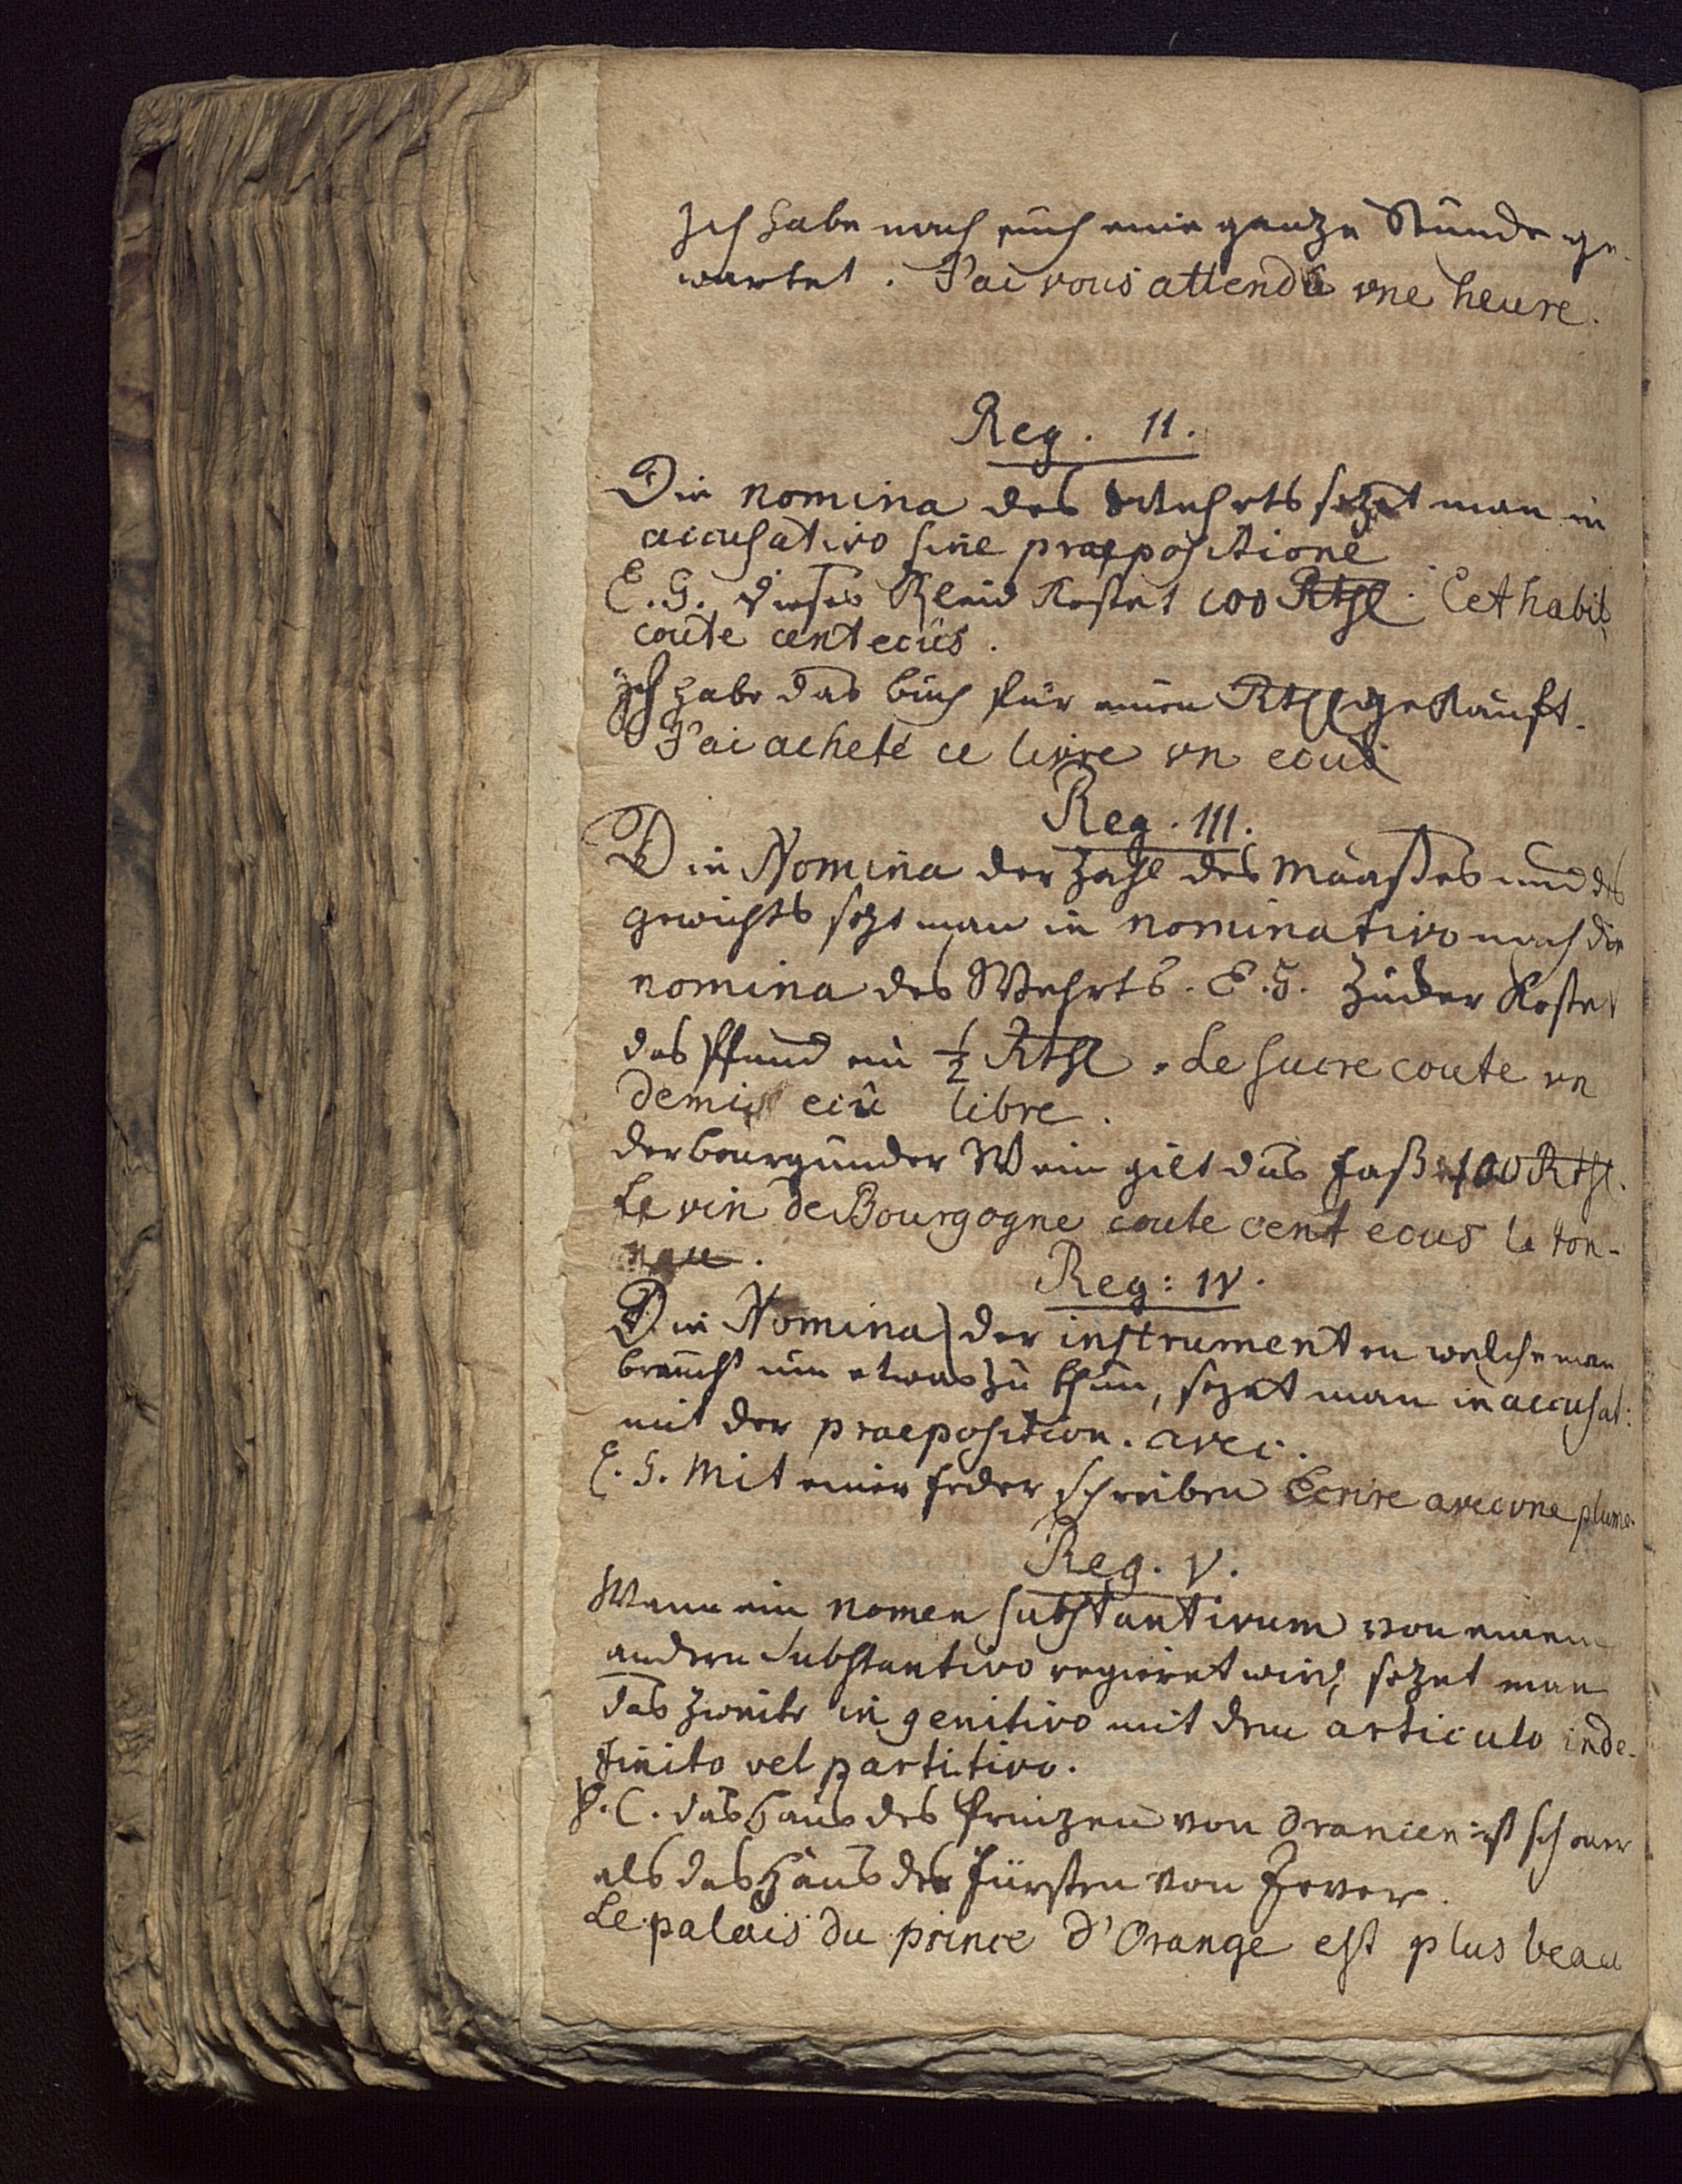 Ich habe nach euch eine ganze Stunde ge-
wartet. J'ai vous attendu vne heure.
Reg. II.
Die nomina des Wehrts sezet man in
accusativo sine praepositione
E. G. dieses Kleid kostet 100 Rthl. Cet habit
coute cent ecus.
Ich habe das buch für einen Rthl gekauft.
J'ai acheté ce livre vn ecus
Reg. III.
Die Nomina der Zahl des Maaßes und des
gewichts sezt man in nominativo nach die
nomina des Wehrts. E. G. Zucker kostet
das Pfund ein ½ Rthl. Le sucre coute vn
demi ecû libre.
der bourgunder Wein gilt das Faß 100 Rthl.
Le vin de Bourgogne coute cent ecus le ton-
neau.
Reg: IV.
Die Nomina der instrumenten welche man
braucht um etwas zu thun, sezet man in accusat:
mit der praeposition. avec.
E. G. Mit einer feder schreiben Ecrire avec vne plume.
Reg. V.
Wenn ein nomen substantivum von einem
andern substantivo regieret wird, sezet man
das zweite in genitivo mit dem articulo inde-
finito vel partitivo.
V. C. das Haus des Prinzen von Oranien ist schöner
als das Haus des Fürsten von Jever.
Le palais du prince d'Orange est plus beau